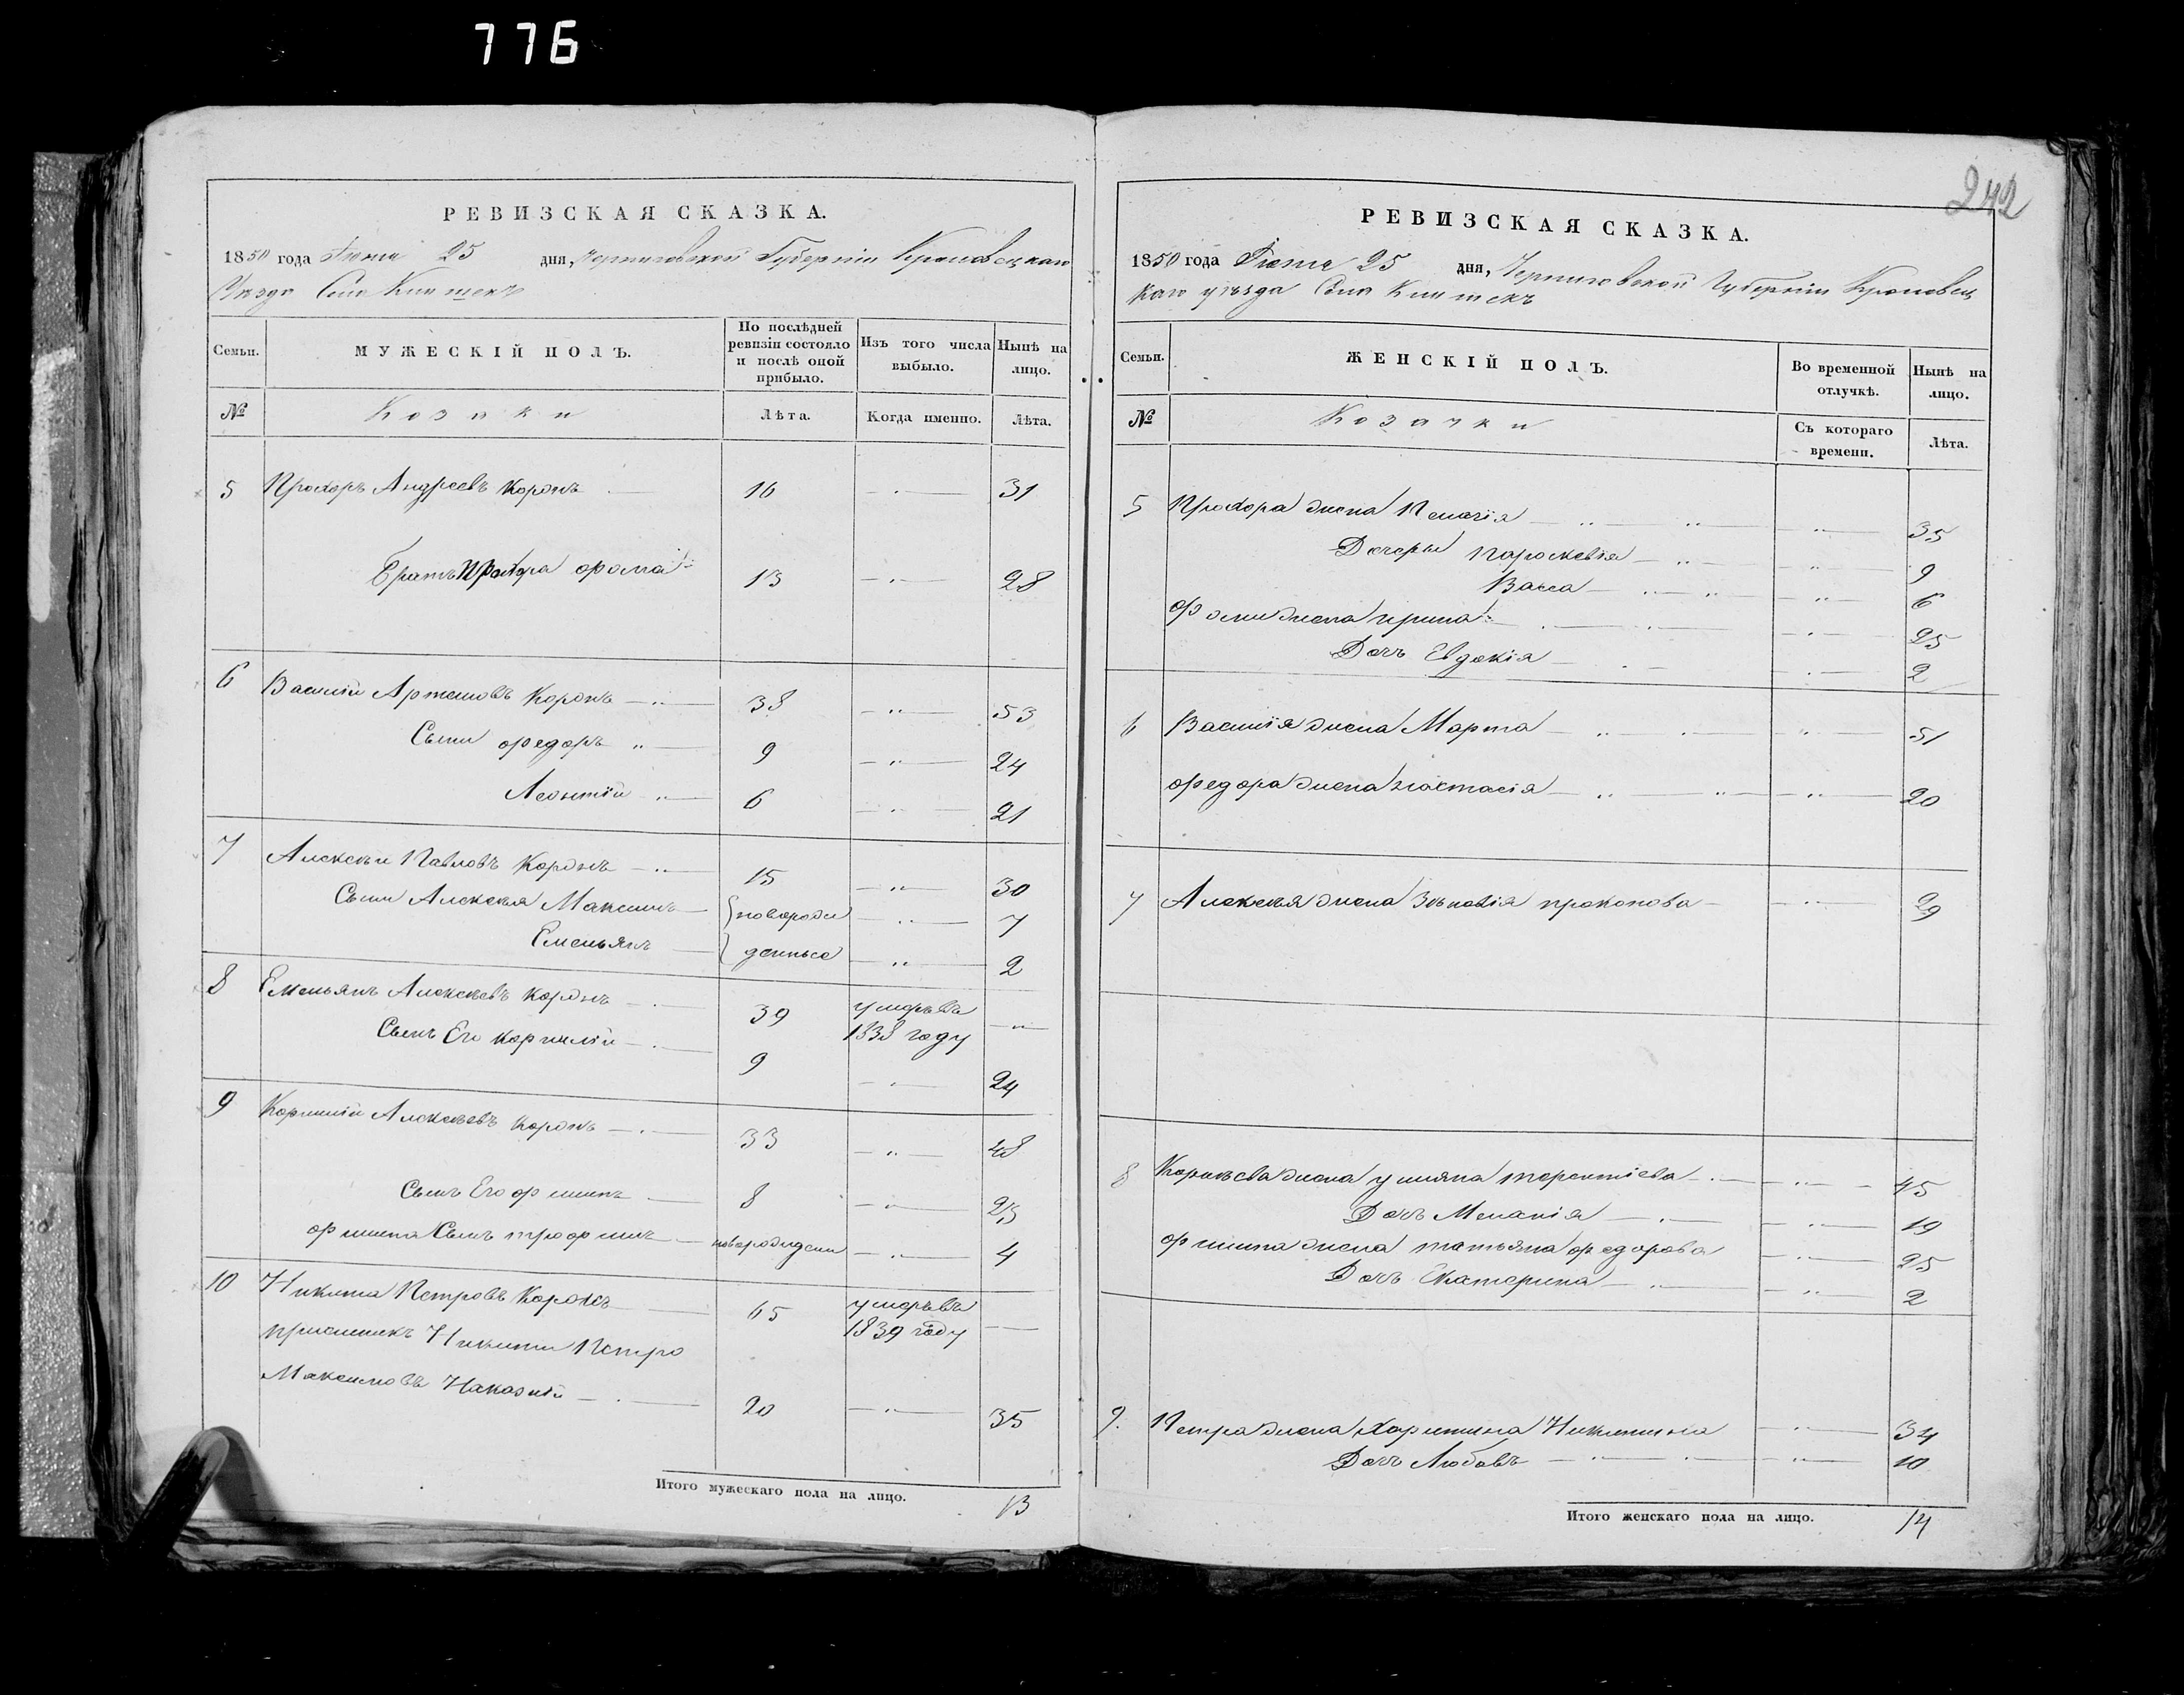 776
РЕВИЗСКАЯ СКАЗКА.
1850 года Июня 25 дня, Черниговской Губерніи Кролевецкаго
Уѣзда Села
Семьи.
МУЖЕСКІЙ ПОЛЪ.
По послѣдней ревизіи состояло и послѣ оной прибыло.
Изъ того числа выбыло.
Нынѣ на лицо.
№
Козаки
Лѣта.
Когда именно.
Лѣта.
5 Прохоръ Андреевъ Коропъ 16 — 31
Братъ Прохора Фома 13 — 28
6 Василій Артемовъ Коропъ — 38 — 53
Сыны Федоръ 9 — 24
Леонтій 6 — 21
7 Алексѣй Павловъ Коропъ — 15 — 30
Сыны Алексѣя Максимъ — новорож — 7
Емельянъ — денные — 2
8 Емельянъ Алексѣевъ Коропъ — 39 умеръ въ —
1838 году
Сынъ Его Корнилій — 9 — 24
9 Корнилій Алексѣевъ Коропъ — 33 — 48
Сынъ Его Филипъ — 8 — 23
Филипа Сынъ Трофимъ — новорожден — 4
10 Никита Петровъ Коропъ — 65 умеръ въ —
1839 году
Пріемникъ Никиты Петро
Максимовъ — 20 — 35
Итого мужескаго пола на лицо. 13
242
РЕВИЗСКАЯ СКАЗКА.
1850 года Июня 25 дня, Черниговской Губерніи Кролевец
каго уѣзда Села
Семьи.
ЖЕНСКІЙ ПОЛЪ.
Во временной отлучкѣ.
Нынѣ на лицо.
№
Козачки
Съ котораго времени.
Лѣта.
5 Прохора жена Пелагія — 35
Дочери Парасковія — 9
Васса — 6
Фомы жена Ирина — 25
Дочь Евдокія — 2
6 Василія жена Марта — 51
Федора жена Настасія — 20
7 Алексѣя жена Зѣновія Прокопова — 29
8 жена Уліяна Терентіева — 45
Дочь Меланія — 19
Филипа жена Татьяна Федорова — 25
Дочь Екатерина — 2
9. Петра жена Харитина Никитина — 34
Дочь Любовъ — 10
Итого женскаго пола на лицо. 14